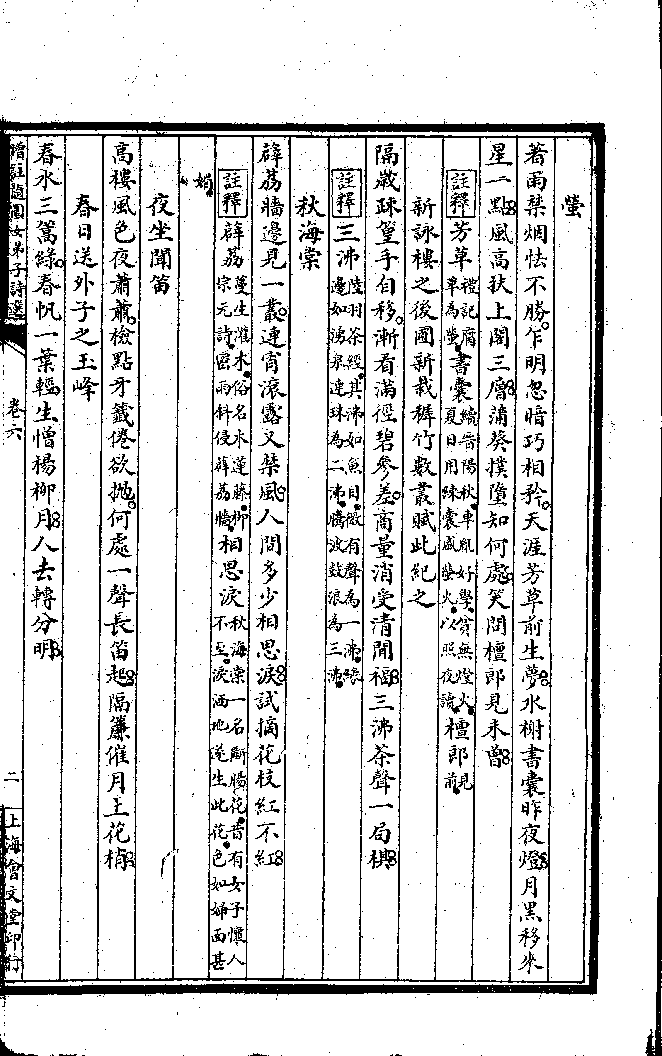 螢
著雨棼烟怯不勝乍明忽暗巧相矜天涯芳草前生夢水榭書囊昨夜燈月黑移來
星一點風高扶上閣三層蒲葵撲墮知何處笑問檀郎見未曾
註釋 芳草 禮記腐
草為螢 書囊 續晉陽秋車胤好學貧無燈火
夏日用練囊盛螢火以照夜讀 檀郎 見
前
新詠樓之後圃新栽稚竹數叢賦此紀之
隔歲疎篁手自移漸看滿徑碧參差商量消受清閒福三沸茶聲一局棋
註釋 三沸 陸羽茶經其沸如魚目微有聲為一沸緣
邊如湧泉連珠為二沸騰波鼓浪為三沸
秋海棠
薜荔牆邊見一叢連宵滾露又棼風人間多少相思淚試摘花枝紅不紅
註釋 薜荔 蔓生灌木俗名木蓮藤柳
宗元詩密雨斜侵薜荔牆 相思淚 秋海棠一名斷腸花昔有女子懷人
不至淚洒地遂生此花色如婦面甚
媚
夜坐聞笛
高樓風色夜蕭蕭檢點牙籤倦欲拋何處一聲長笛起隔簾催月上花梢
春日送外子之玉峰
春水三篙綠春帆一葉輕生憎楊柳月人去轉分明
增註隨園女弟子詩選 卷六 二 上海會文堂印行